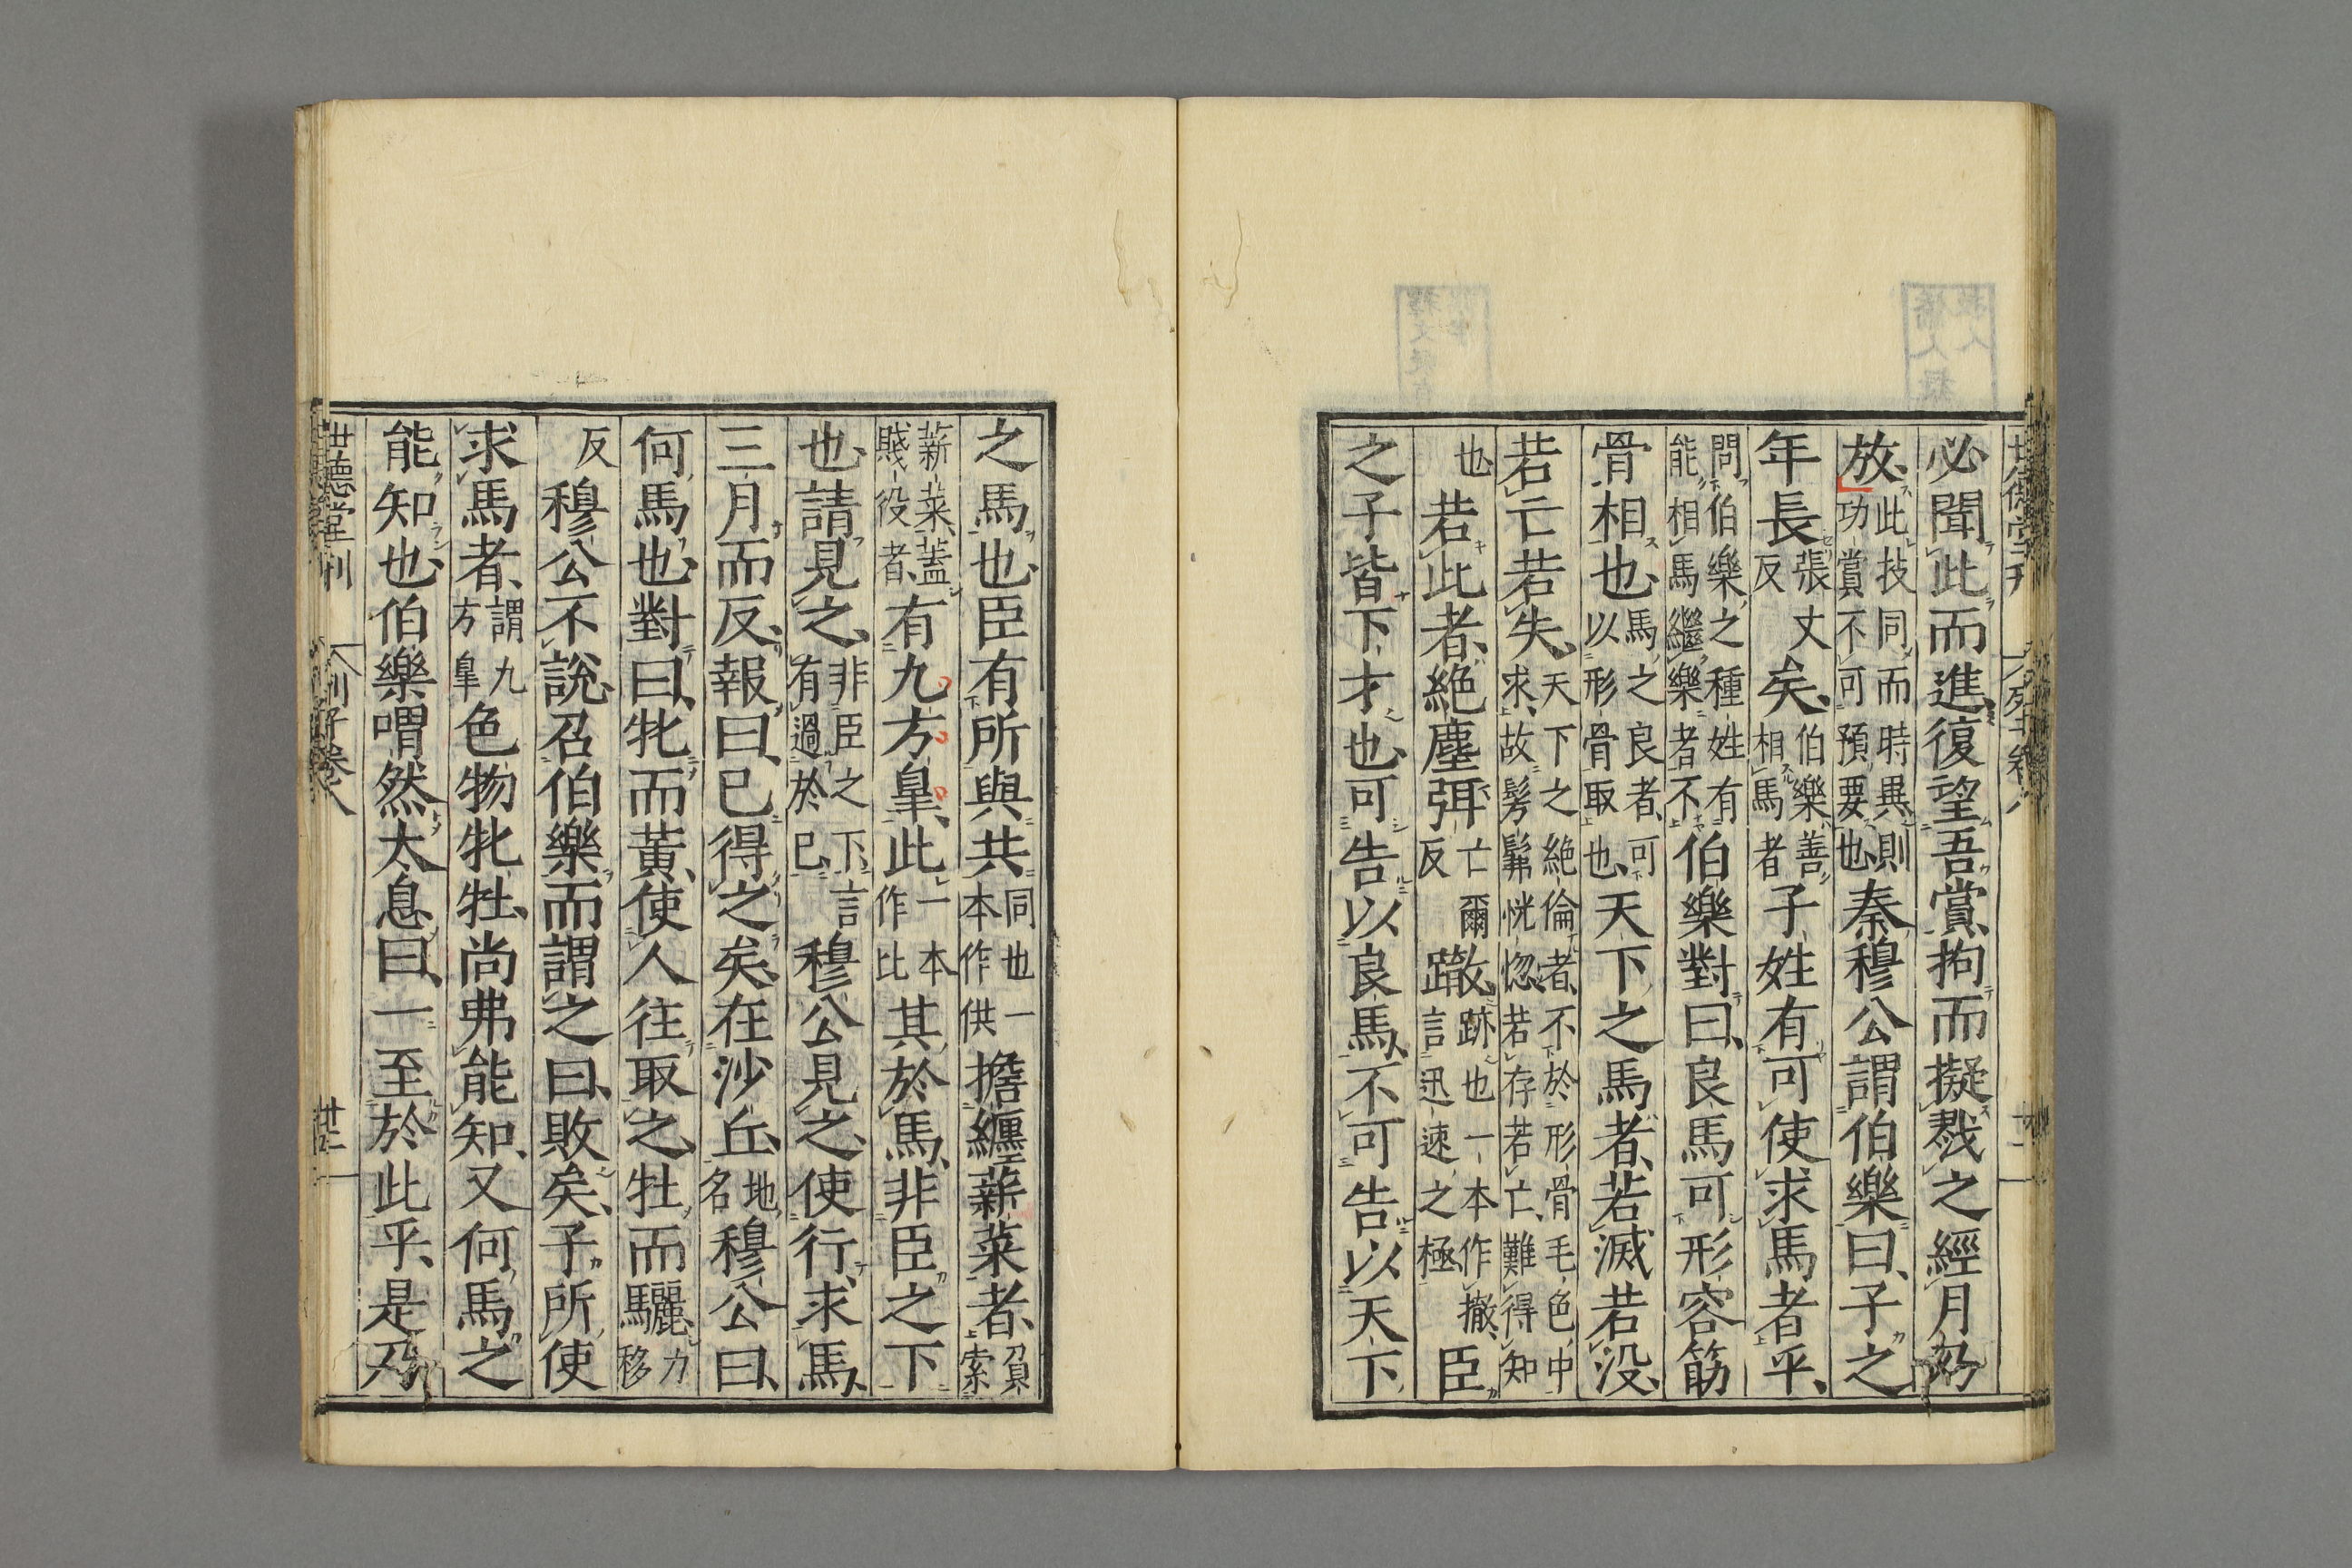 必聞此而進復望吾賞拘而擬戮之經月乃
放此技同而時異則功賞不可預要也秦穆公謂伯樂曰子之
年長張丈反矣伯樂善相馬者子姓有可使求馬者乎
問伯樂之種姓有能相馬繼樂者不伯樂對曰良馬可形容筋
骨相也馬之良者可以形骨取也天下之馬者若滅若没
若亡若失天下之絶倫者不於形骨毛色中求故髣髴恍惚若存若亡難得知
也若此者絶塵弭亡爾反𨅊跡也一本作撤言迅速之極臣
之子皆下才也可告以良馬不可告以天下
之馬也臣有所與共同也一本作供擔纏薪菜者負索
薪菜蓋賤役者有九方臯此一本作比其於馬非臣之下
也請見之非臣之下言有過於已穆公見之使行求馬
三月而反報曰已得之矣在沙丘地名穆公曰
何馬也對曰牝而黃使人往取之牡而驪力移
反穆公不說召伯樂而謂之曰敗矣子所使
求馬者謂九方臯色物牝牡尚弗能知又何馬之
能知也伯樂喟然太息曰一至於此乎是乃
世德堂刊 列子卷八 廿二